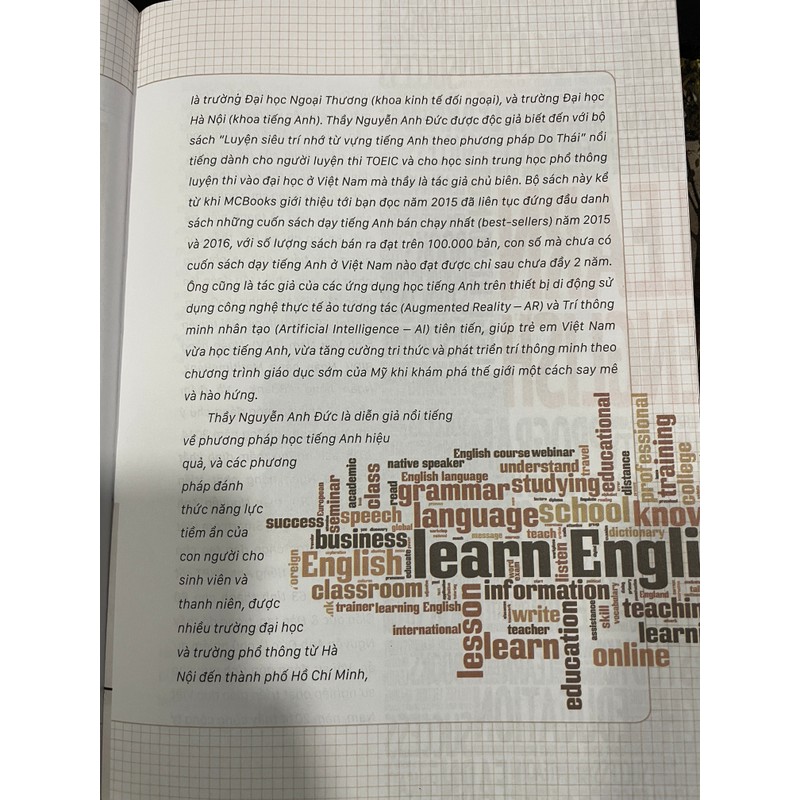 là trường Đại học Ngoại Thương (khoa kinh tế đối ngoại), và trường Đại học
Hà Nội (khoa tiếng Anh). Thầy Nguyễn Anh Đức được độc giả biết đến với bộ
sách "Luyện siêu trí nhớ từ vựng tiếng Anh theo phương pháp Do Thái" nổi
tiếng dành cho người luyện thi TOEIC và cho học sinh trung học phổ thông
luyện thi vào đại học ở Việt Nam mà thầy là tác giả chủ biên. Bộ sách này kể
từ khi MCBooks giới thiệu tới bạn đọc năm 2015 đã liên tục đứng đầu danh
sách những cuốn sách dạy tiếng Anh bán chạy nhất (best-sellers) năm 2015
và 2016, với số lượng sách bán ra đạt trên 100.000 bản, con số mà chưa có
cuốn sách dạy tiếng Anh ở Việt Nam nào đạt được chỉ sau chưa đầy 2 năm.
Ông cũng là tác giả của các ứng dụng học tiếng Anh trên thiết bị di động sử
dụng công nghệ thực tế ảo tương tác (Augmented Reality – AR) và Trí thông
minh nhân tạo (Artificial Intelligence – AI) tiên tiến, giúp trẻ em Việt Nam
vừa học tiếng Anh, vừa tăng cường tri thức và phát triển trí thông minh theo
chương trình giáo dục sớm của Mỹ khi khám phá thế giới một cách say mê
và hào hứng.
Thầy Nguyễn Anh Đức là diễn giả nổi tiếng
về phương pháp học tiếng Anh hiệu
quả, và các phương
pháp đánh
thức năng lực
tiềm ẩn của
con người cho
sinh viên và
thanh niên, được
nhiều trường đại học
và trường phổ thông từ Hà
Nội đến thành phố Hồ Chí Minh,
English course webinar
native speaker
understand
travel
educational
distance
professional
training
college
academic
class
English language
read
grammar
studying
European
seminar
success
speech
global
language
school
know
business
message
teach
dictionary
learn Engli
oreign
English
educate
listen
classroom
word
exam
information
vocabulary
England
nk
trainer
learning English
lesson
write
education
assistance
skill
teachin
international
teacher
learn
learn
online